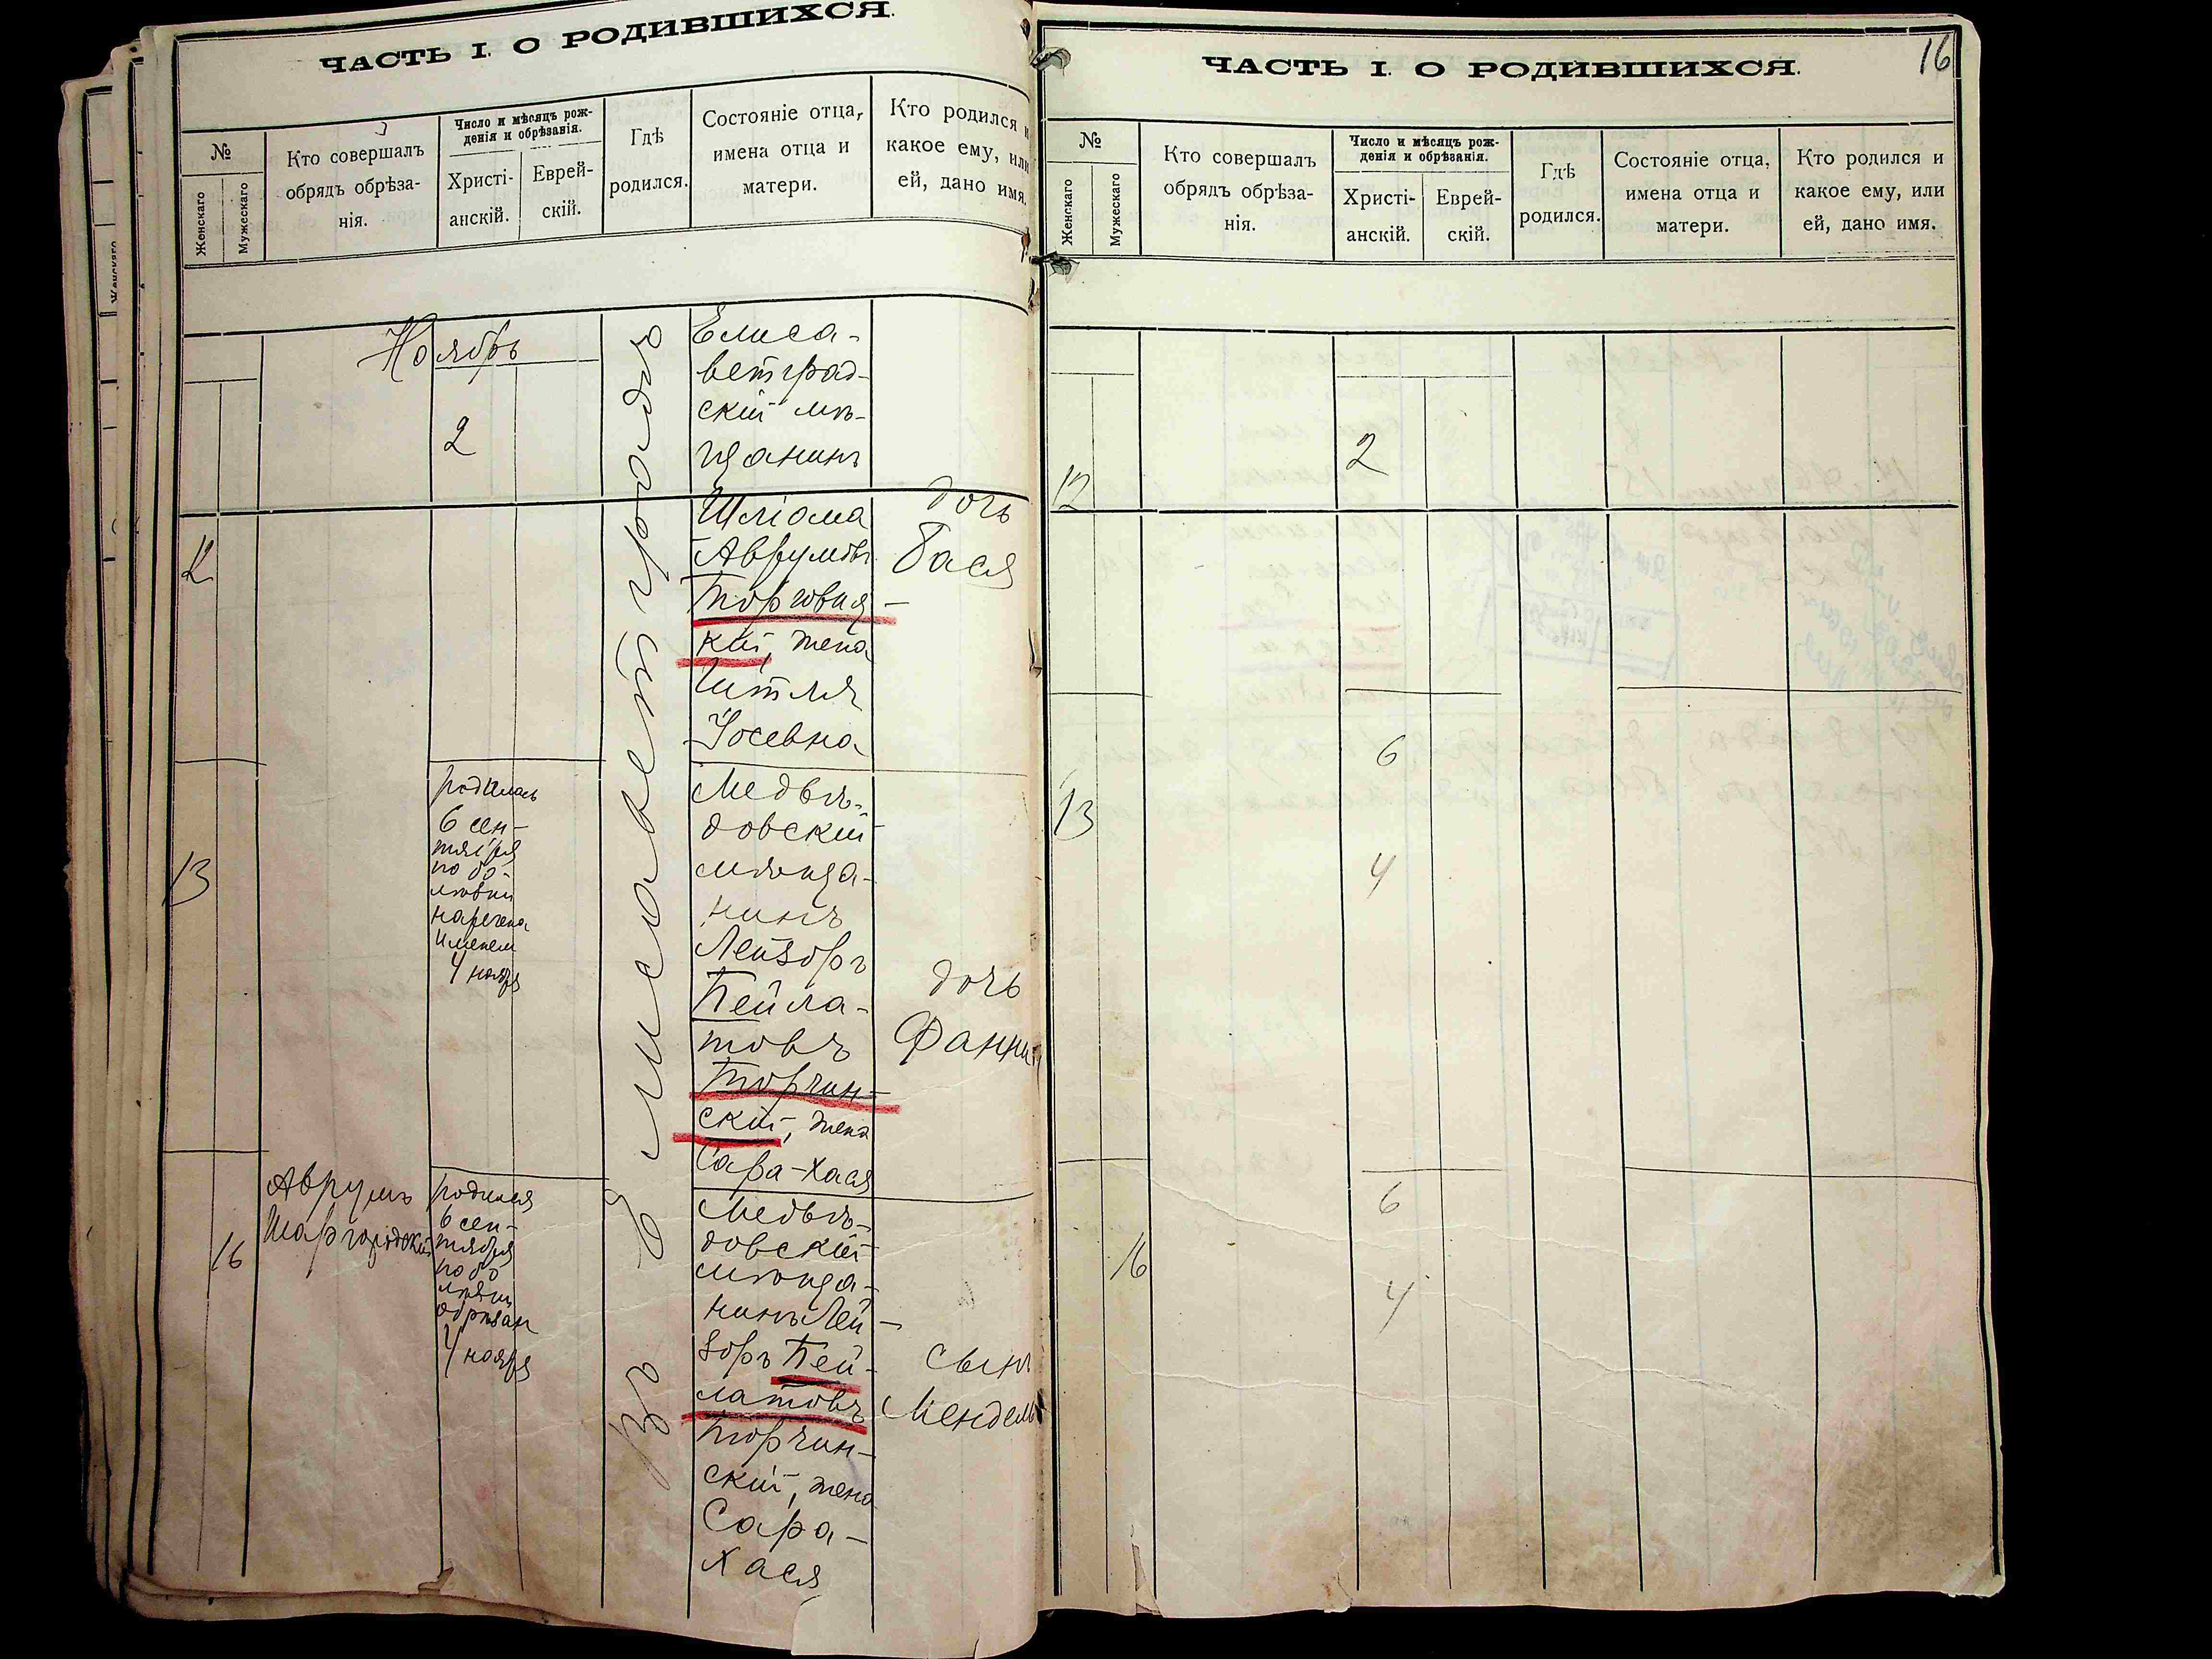 ЧАСТЬ I. О РОДИВШИХСЯ.
№
Женскаго
Мужескаго
Кто совершалъ
обрядъ обрѣза-
нія.
Число и мѣсяцъ рож-
денія и обрѣзанія.
Христі-
анскій.
Еврей-
скій.
Гдѣ
родился.
Состояніе отца,
имена отца и
матери.
Кто родился и
какое ему, или
ей, дано имя.
Ноябрь
2
12
Въ Елисаветградѣ
Елиса-
ветград-
скій мѣ-
щанинъ
Шліома
Аврумовъ
Торговиц-
кій, жена
Итля
Іосевна
дочь
Бася
13
родилась
6 сен-
тября
по бо-
лѣзни
наречена
именем
4 ноября
Медвѣ-
довскій
мѣща-
нинъ
Лейзоръ
Бейла-
товъ
Торчин-
скій, жена
Сара-Хася
дочь
Фанни
16
Аврумъ
Шаргородскій
родился
6 сен-
тября
по бо
лѣзни
обрѣзан
4 ноября
Медвѣ-
довскій
мѣща-
нинъ Лей-
зоръ Бей-
латовъ
Торчин-
скій, жена
Сара-
Хася
сынъ
Мендель
16
ЧАСТЬ I. О РОДИВШИХСЯ.
№
Женскаго
Мужескаго
Кто совершалъ
обрядъ обрѣза-
нія.
Число и мѣсяцъ рож-
денія и обрѣзанія.
Христі-
анскій.
Еврей-
скій.
Гдѣ
родился.
Состояніе отца,
имена отца и
матери.
Кто родился и
какое ему, или
ей, дано имя.
12
2
6
13
4
6
16
4